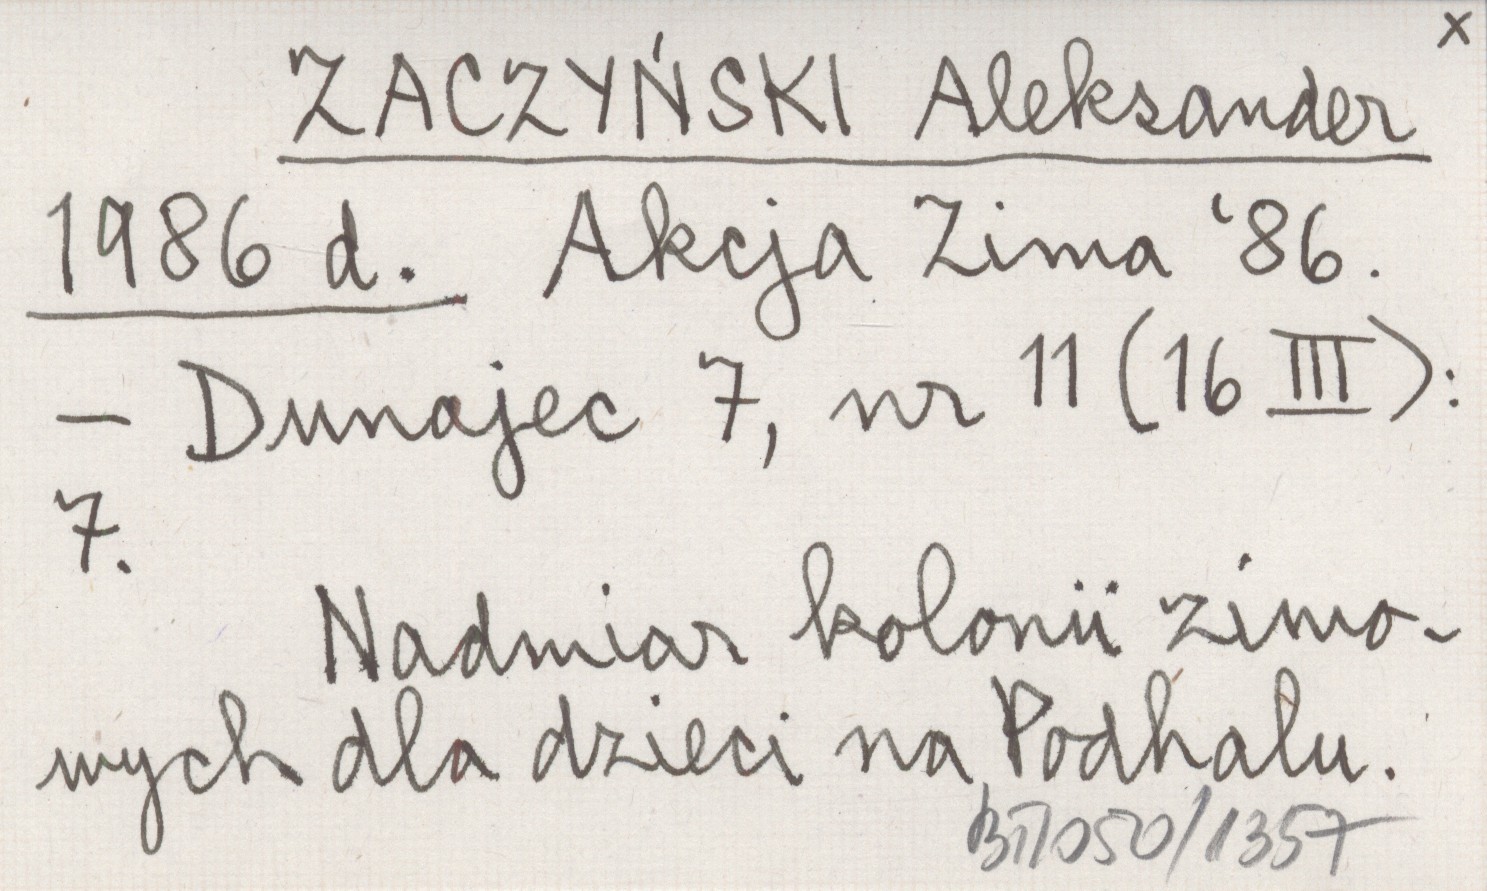 x
ZACZYŃSKI Aleksander
1986 d. Akcja Zima '86.
– Dunajec 7, nr 11 (16 III):
7.
Nadmiar kolonii zimo-
wych dla dzieci na Podhalu.
BT/050/1357